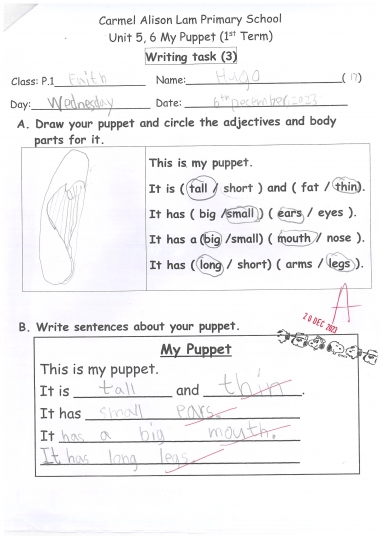 Carmel Alison Lam Primary School
Unit 5, 6 My Puppet (1st Term)
Writing task (3)
Class: P.1 Faith Name: Hugo ( )
Day: Wednesday Date: 6th December, 2023
A. Draw your puppet and circle the adjectives and body
parts for it.
This is my puppet.
It is ( tall / short ) and ( fat / thin).
It has ( big /small) ( ears / eyes ).
It has a (big /small) ( mouth / nose ).
It has ( long / short) ( arms / legs ).
A
20 DEC 2023
B. Write sentences about your puppet.
My Puppet
This is my puppet.
It is tall and thin.
It has small ears.
It has a big mouth.
It has long legs.